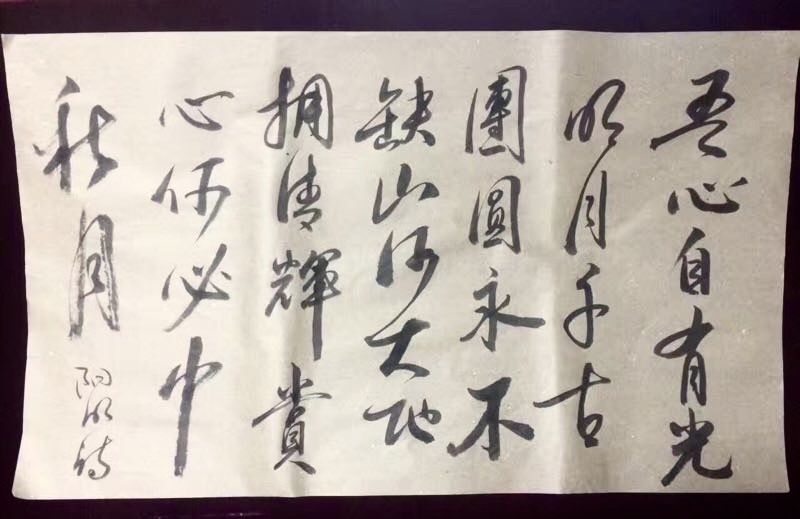 吾心自有光
明月千古
團圓永不
缺山河大地
拥清輝賞
心何必中
秋月
阳明诗